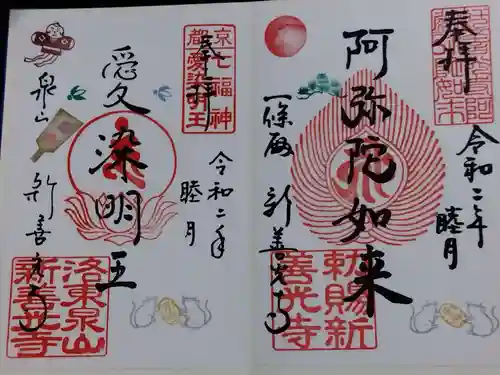 奉拝
令和二年
睦月
阿弥陀如来
一條殿 新善光寺
勅賜新善光寺
奉拝
京七福神
都愛染明王
令和二年
睦月
愛久染明王
泉山 新善光寺
洛東泉山新善光寺